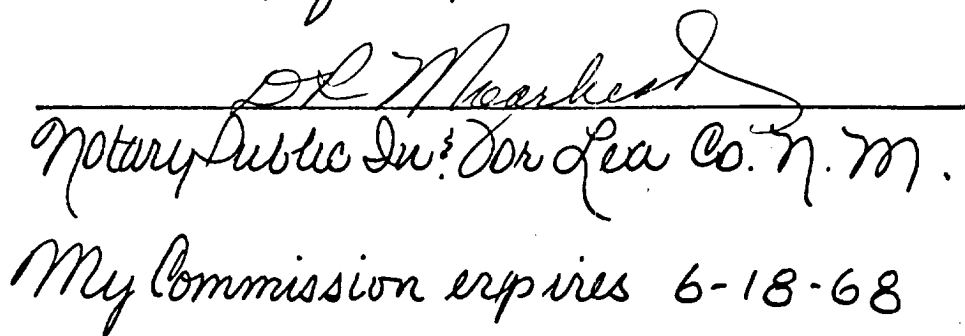 D R Moorhead
Notary Public In & For Lea Co. N. M.
My Commission expires 6-18-68